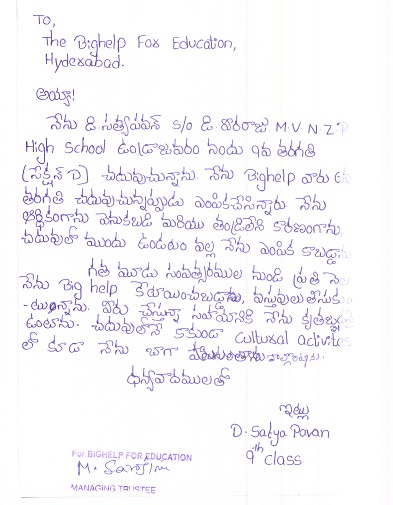 To,
The Bighelp For Education,
Hyderabad.
అయ్యా!
నేను డి.సత్యపవన్ S/o డి. దొరరాజు M.V.N.Z.P
High School ఉండ్రాజవరం నందు 9వ తరగతి
(సెక్షన్ D) చదువుచున్నాను. నేను Bighelp వారు 6వ
తరగతి చదువుచున్నప్పుడు ఎంపికచేసినారు నేను
ఆర్థికంగాను వెనుకబడి మరియు తండ్రిలేని కారణంగాను,
చదువులో ముందు ఉండటం వల్ల నేను ఎంపిక కాబడ్డాను
గత మూడు సంవత్సరముల నుండి ప్రతి నెల
నేను Big help కేటాయించబడ్డాను, వస్తువులు తీసుకుం
-టున్నాను. వీరు చేస్తున్న సహాయానికి నేను కృతజ్ఞుడనై
ఉంటాను. చదువులోనే కాకుండా Cultural activites
లో కూడా నేను బాగా పాల్గొంటాను.
ధన్యవాదములతో
ఇట్లు
D. Satya Pavan
9th class
For BIGHELP FOR EDUCATION
MANAGING TRUSTEE